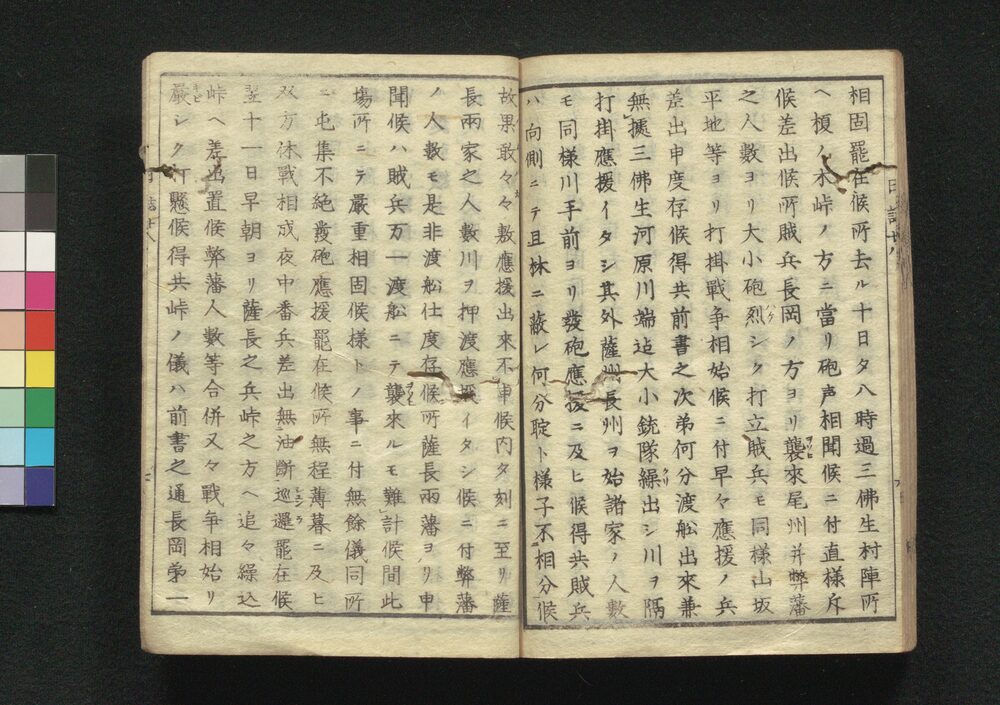 相固罷在候所去ル十日夕八時過三佛生村陣所
ヘ榎ノ木峠ノ方ニ當リ砲声相聞候ニ付直様斥
候差出候所賊兵長岡ノ方ヨリ襲來尾州并弊藩
之人數ヨリ大小砲烈シク打立賊兵モ同様山坂
平地等ヨリ打掛戦争相始候ニ付早々應援ノ兵
差出申度存候得共前書之次弟何分渡船出來兼
無據三佛生河原川端迠大小銃隊繰出シ川ヲ隔
打掛應援イタシ其外薩州長州ヲ始諸家ノ人數
モ同様川手前ヨリ發砲應援ニ及ヒ候得共賊兵
ハ向側ニテ且林ニ蔽レ何分聢ト様子不相分候
故果敢々々敷應援出来不申候内夕刻ニ至リ薩
長兩家之人數川ヲ押渡應援イタシ候ニ付弊藩
ノ人數モ是非渡船仕度存候所薩長兩藩ヨリ申
聞候ハ賊兵万一渡船ニテ襲來ルモ難計候間此
場所ニテ嚴重相固候様トノ事ニ付無餘儀同所
ニ屯集不絶發砲應援罷在候所無程薄暮ニ及ヒ
双方休戦相成夜中番兵差出無油断巡邏罷在候
翌十一日早朝ヨリ薩長之兵峠之方ヘ追々繰込
峠ヘ差出置候弊藩人數等合併又々戦争相始リ
嚴シク打懸候得共峠ノ儀ハ前書之通長岡弟一